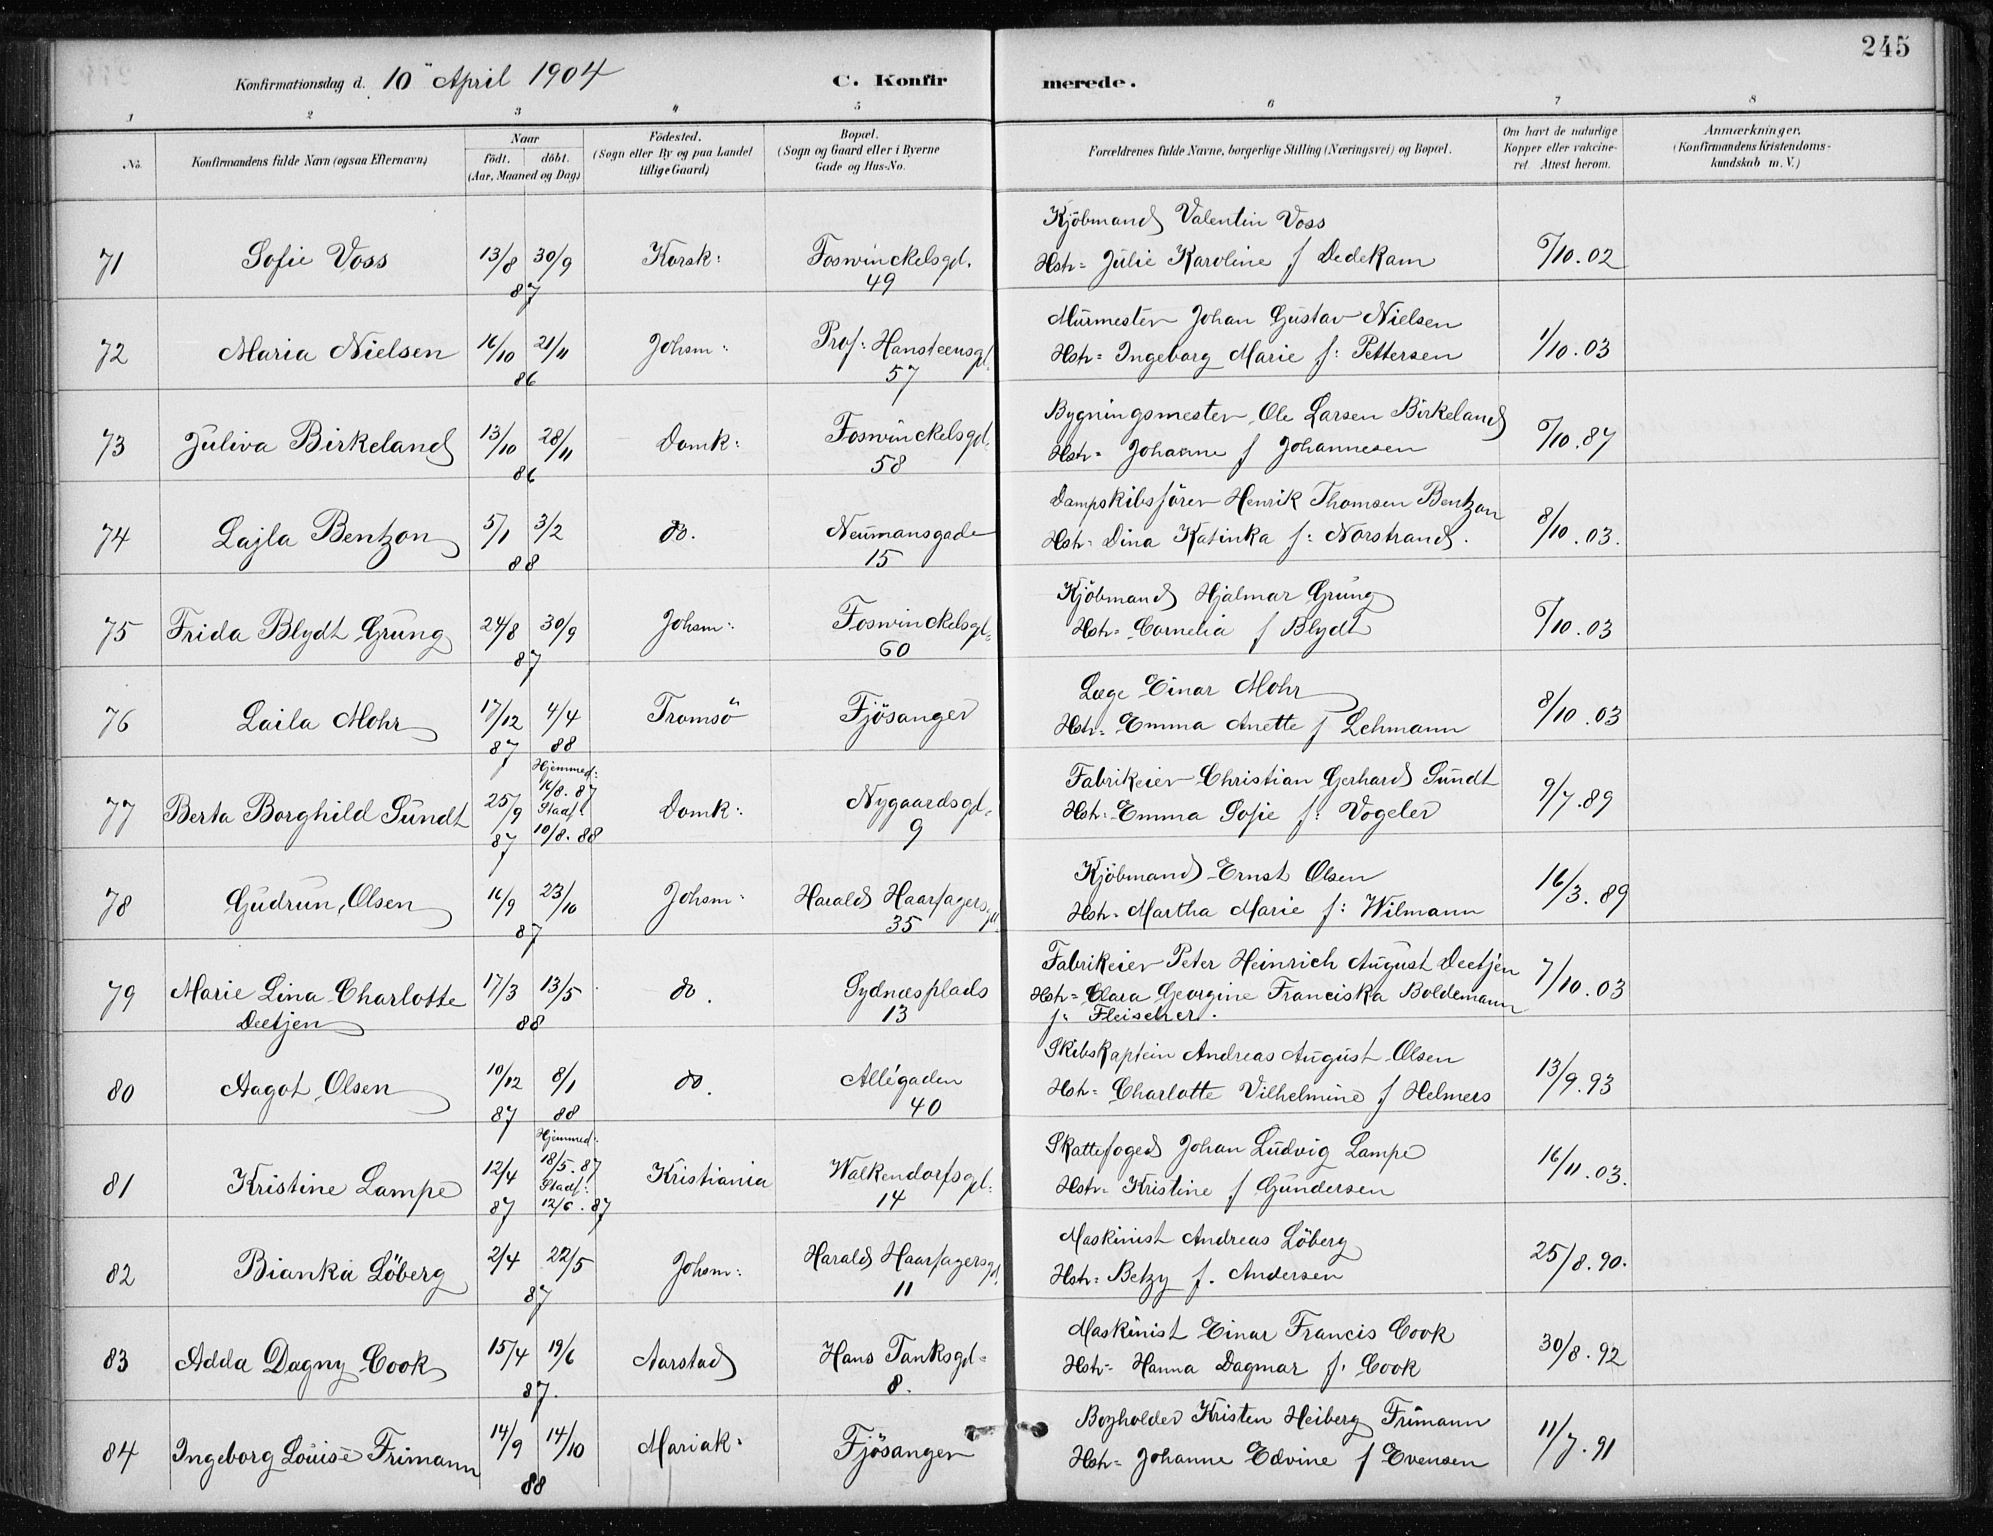 245
Konfirmationsdag d. 10 April 1904 C. Konfir merede.
1 2 3 4 5 6 7 8
No. Konfirmandens fulde Navn (ogsaa Efternavn) Naar födt. döbt. (Aar, Maaned og Dag) Födested. (Sogn eller By og paa Landet tillige Gaard) Bopæl. (Sogn og Gaard eller i Byerne Gade og Hus-No. Forældrenes fulde Navne, borgerlige Stilling (Næringsvei) og Bopæl. Om havt de naturlige Kopper eller vakcineret. Attest herom. Anmærkninger. (Konfirmandens Kristendomskundskab m. V.)
Kjöbmand Valentin Voss
71 Sofie Voss 13/8 30/9 Korsk: Foswinckelsgd. Hstr= Julie Karoline f Dedekam /10.02
87 49
Murmester Johan Gustav Nielsen
72 Maria Nielsen 16/10 21/11 Johsm: Prof: Hansteensgd. Hstr= Ingeborg Marie f: Pettersen 1/10.03
86 57
Bygningsmester Ole Larsen Birkeland
73 Juliva Birkeland 13/10 28/11 Domk: Foswinckelsgd. Hstr= Johanne f Johannesen /10.87
86 58
Dampskibsförer Henrik Thomsen Bentzon
74 Lajla Bentzon 5/1 3/2 do. Neumansgade Hstr= Dina Katinka f: Norstrand. 8/10.03.
88 15
Kjöbmand Hjalmar Grung
75 Frida Blydt Grung 24/8 30/9 Johsm: Foswinckelsgd= Hstr= Cornelia f Blydt /10.03
87 60
Læge Einar Mohr
76 Laila Mohr 17/12 4/4 Tromsö Fjösanger Hstr= Emma Anette f Lehmann 8/10.03
87 88
Hjemmed: 16/8.87 Fabrikeier Christian Gerhard Sundt
77 Berta Borghild Sundt 25/9 Stadf: Domk: Nygaardsgd= Hstr= Emma Sofie f: Vogeler 9/7.89
87 10/8.88 9
Kjöbmand Ernst Olsen
78 Gudrun Olsen 16/9 23/10 Johsm: Harald Haarfagersgd. Hstr= Martha Marie f: Wilmann 16/3.89
87 35
Fabrikeier Peter Heinrich August Deetjen
79 Marie Lina Charlotte 17/3 13/5 do. Sydnæsplads Hstr= Clara Georgine Franciska Boldemann 7/10.03
Deetjen 88 13 f: Fleischer.
Skibskaptein Andreas August Olsen
80 Aagot Olsen 10/12 8/1 do. Allégaden Hstr= Charlotte Vilhelmine f Helmers 13/9.93
87 88 40
Hjemmed: 18/5.87 Skattefoged Johan Ludvig Lampe
81 Kristine Lampe 12/4 Stadf: Kristiania Walkendorfsgd: Hstr= Kristine f Gundersen 16/11.03.
87 12/6.87 14
Maskinist Andreas Löberg
82 Bianka Löberg 2/4 22/5 Johsm: Harald Haarfagersgd. Hstr= Betzy f. Andersen 25/8.90.
87 11
Maskinist Einar Francis Cook
83 Adda Dagny Cook 15/4 19/6 Aarstad Hans Tanksgd= Hstr= Hanna Dagmar f: Cook 30/8.92
87. 8.
Bogholder Kristen Heiberg Frimann
84 Ingeborg Louise Frimann 14/9 14/10 Mariak: Fjösangen Hstr= Johanne Edvine f Evensen 11/7.91
88